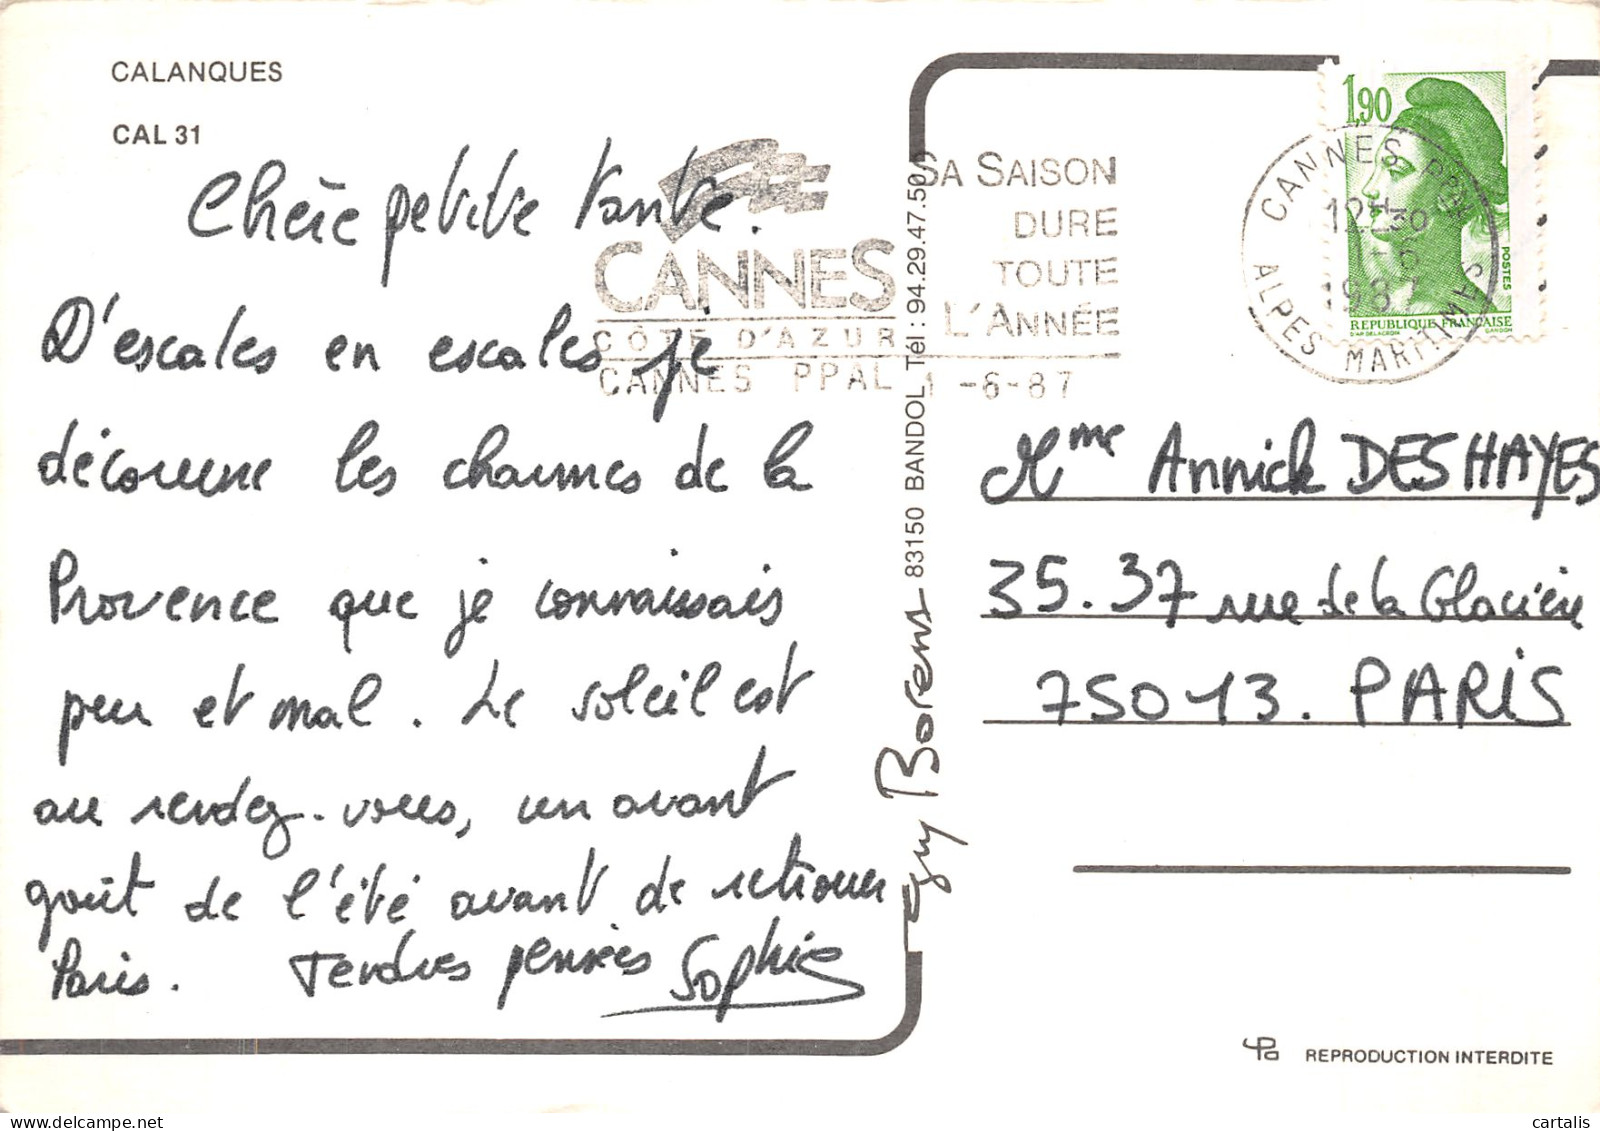 CALANQUES
CAL 31
Chère petite Tante.
D'escales en escales je
découvre les charmes de la
Provence que je connaissais
peu et mal. Le soleil est
au rendez-vous, un avant
goût de l'été avant de retrouver
Paris. Tendres pensées Sophie
CANNES
CÔTE D'AZUR
SA SAISON
DURE
TOUTE
L'ANNÉE
CANNES PPAL 1-6-87
1,90
POSTES
REPUBLIQUE FRANÇAISE
D'AP. DELACROIX GANDON
CANNES PPAL
12H30
1-6
1987
ALPES MARITIMES
Guy Borens 83150 BANDOL Tél : 94.29.47.50
Mme Annick DESHAYES
35.37 rue de la Glacière
75013. PARIS
REPRODUCTION INTERDITE
cartalis